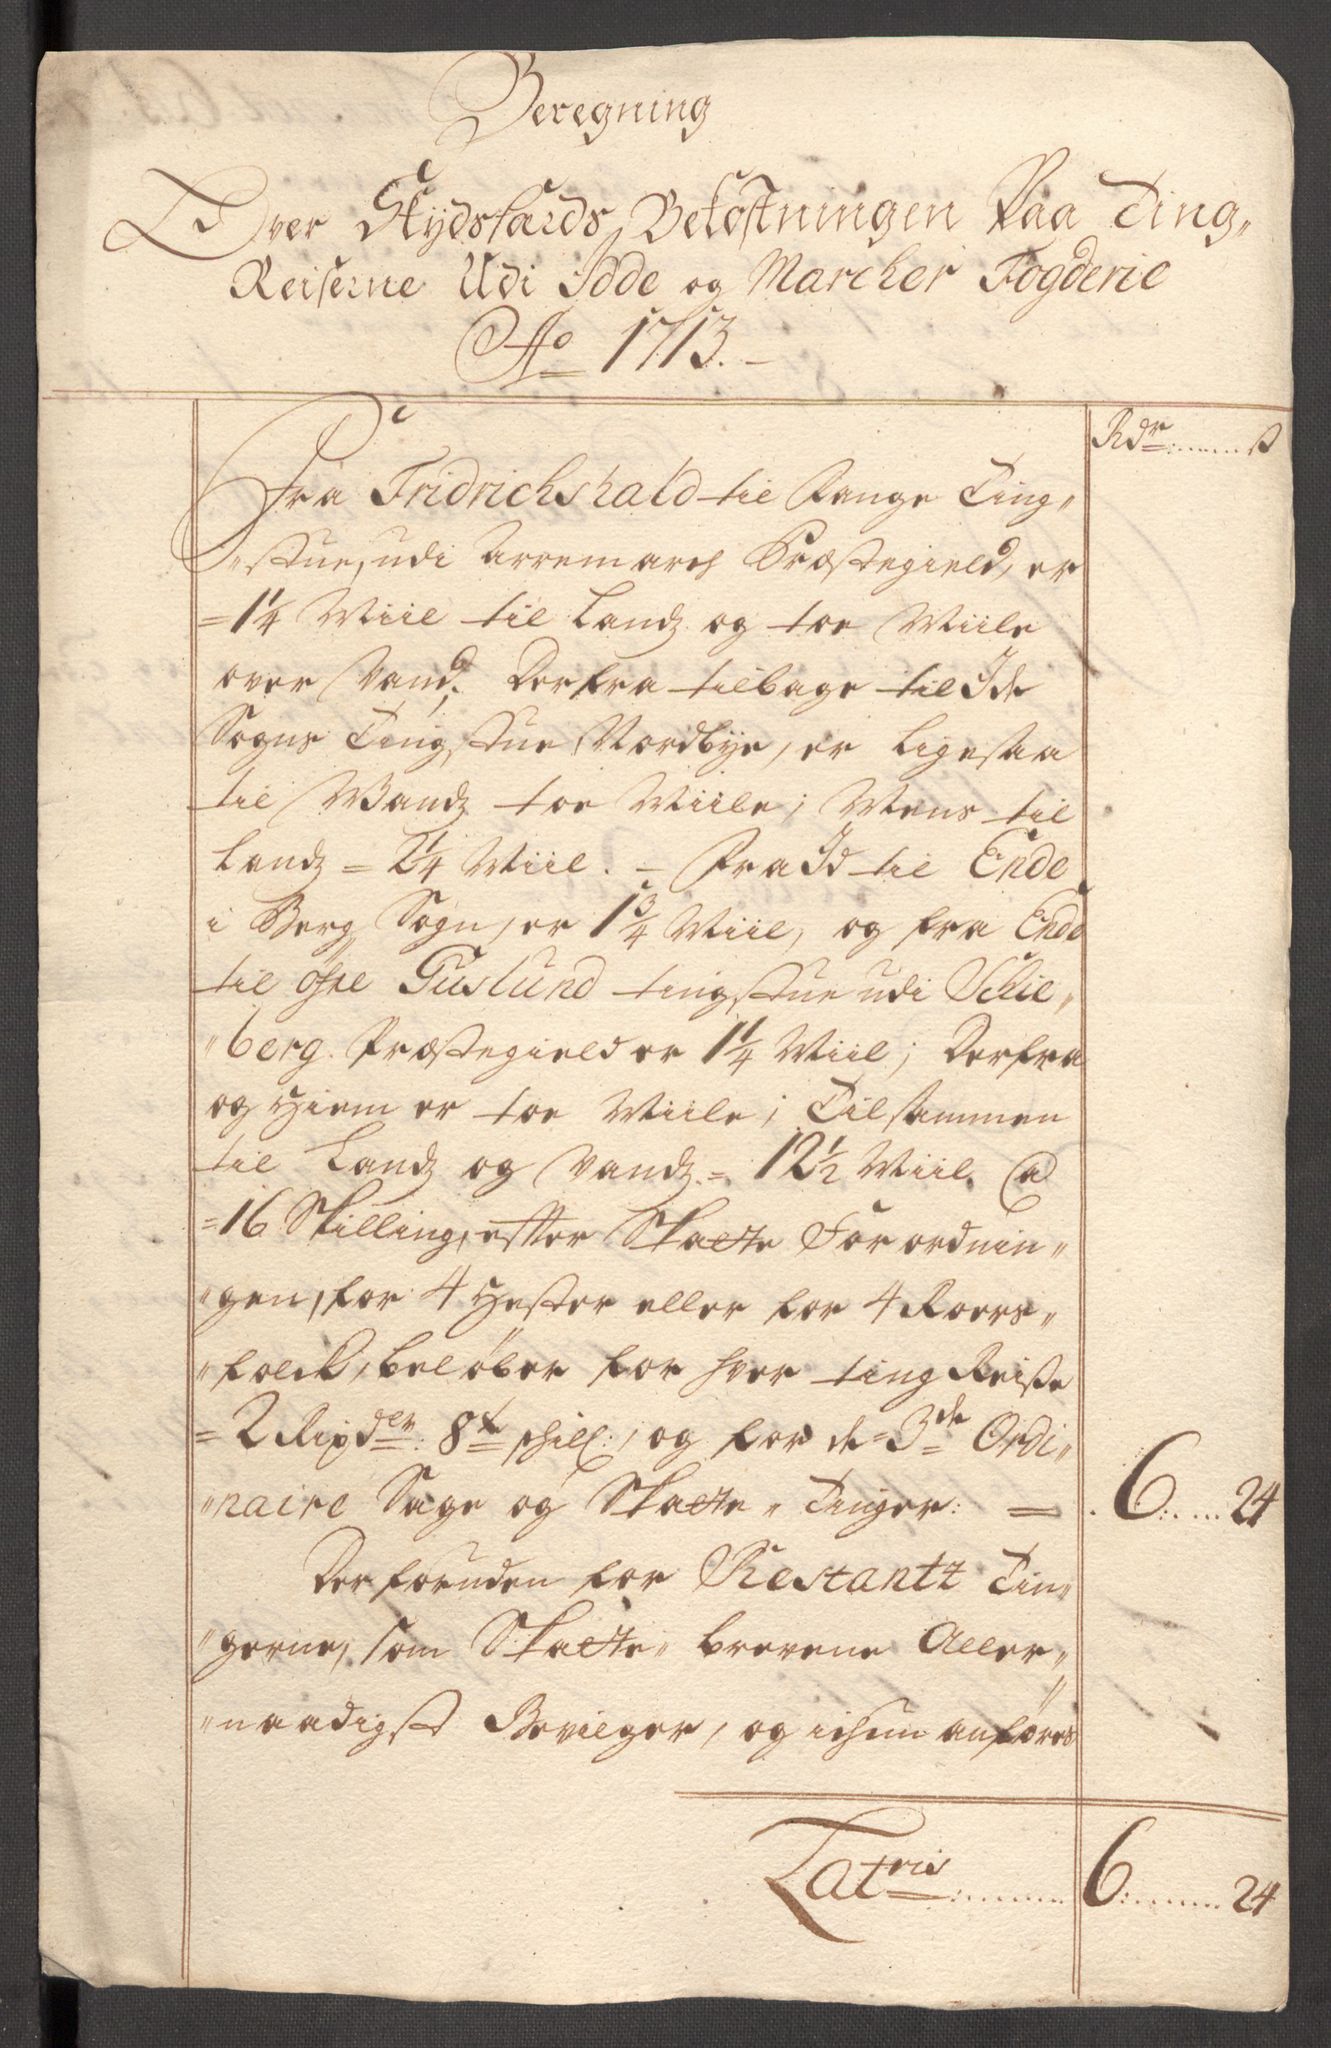 Beregning
Over Skydsfærds Bekostningen Paa Ting„
Reiserne Udi Idde og Marcher Fogderie
Ao 1713.
Rdr ß
Fra Fridrichshald til Range Ting„
„stue, udi Arremarch Præstegield, er
= 1 1/4 Miil til Landz og toe Miile
over Vand; Derfra tilbage til Ide
Sogns Tingstue, Nordbye, er ligesaa
til Vandz toe Miile; Mens til
Landz = 2 1/4 Miil. – Fra Id til Ende
i Berg Sogn, er 1 3/4 Miil, og fra Ende
til Guslund tingstue udi Schie„
„berg Præstegield er 1 1/4 Miil; Derfra
og Hiem er toe Miile; Tilsammen
til Landz og Vandz = 12 1/2 Miil. a
= 16 Skilling, efter Skatte Forordnin„
„gen, for 4 Hester eller for 4 Roers„
„folck, beløber for hver ting Reise
= 2 Rixdlr: 8te schill:, og for de 3de Ordi„
„naire Sage og Skatte„ Tinger: = 6 24
Der foruden for Restantz Tin„
„gerne, som Skatte„ brevene Aller„
„naadigst Bevilger, og ichun anføres
Latris 6 24